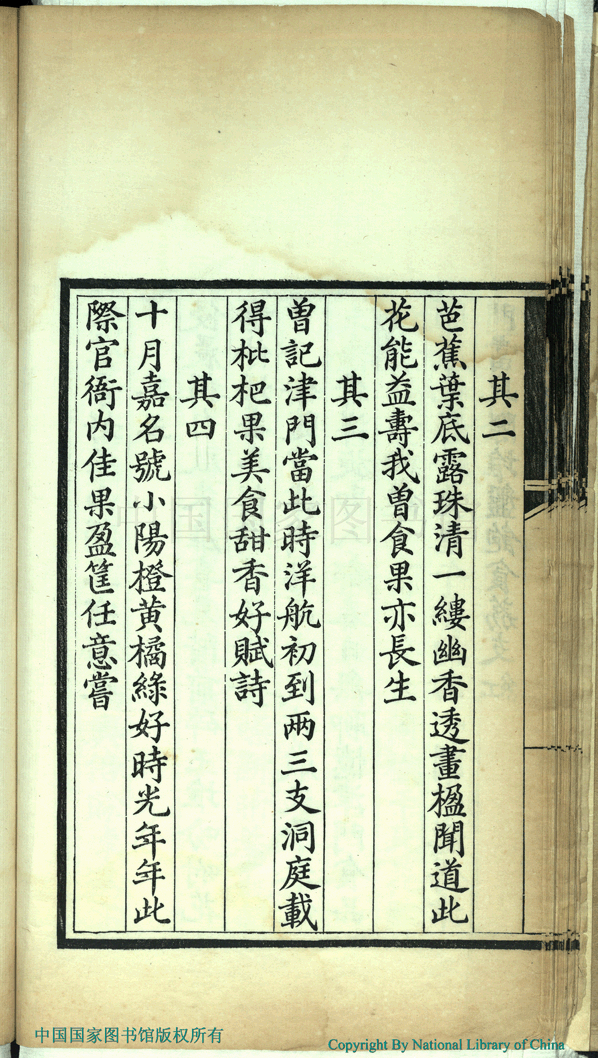 其二
芭蕉葉底露珠清一縷幽香透畫楹聞道此
花能益壽我曾食果亦長生
其三
曽記津門當此時洋航初到兩三支洞庭載
得枇杷果美食甜香好賦詩
其四
十月嘉名號小陽橙黃橘綠好時光年年此
際官衙内佳果盈筐任意嘗
中国国家图书馆版权所有
Copyright By National Library of China